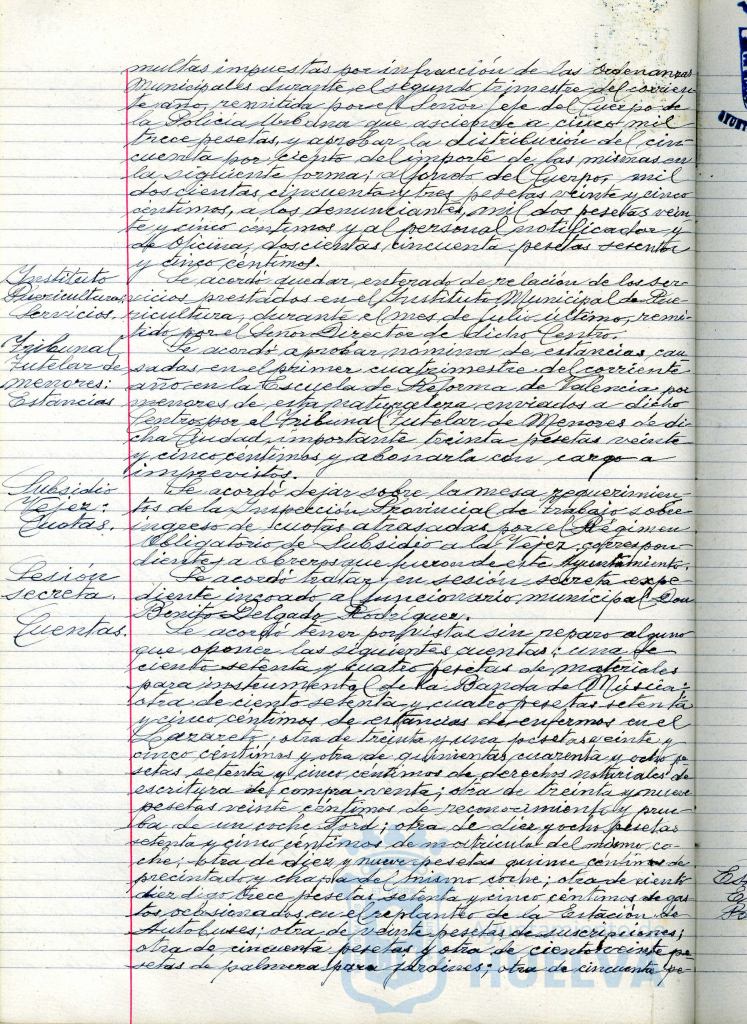 multas impuestas por infracción de las ordenanzas
Municipales durante el segundo trimestre del corrien-
te año, remitida por el Señor Jefe del Cuerpo de
la Policía Urbana que asciende a cinco mil
trece pesetas, y aprobar la distribución del cin-
cuenta por ciento del importe de las mismas en
la siguiente forma; al fondo del Cuerpo, mil
doscientas cincuenta y tres pesetas veinte y cinco
céntimos, a los denunciantes, mil dos pesetas vein-
te y cinco centimos y al personal notificador y
de Oficina, doscientas cincuenta pesetas sesenta
y cinco céntimos.
Instituto
Puericultura;
Servicios.
Se acordó quedar enterado de relación de los ser-
vicios prestados en el Instituto Municipal de Pue-
ricultura, durante el mes de julio último, remi-
tido por el Señor Director de dicho Centro.
Tribunal
Tutelar de
menores:
Estancias
Se acordó aprobar nómina de estancias cau-
sadas en el primer cuatrimestre del corriente
año en la Escuela de Reforma de Valencia por
menores de esta naturaleza enviados a dicho
Centro por el Tribunal Tutelar de Menores de di-
cha Ciudad, importante treinta pesetas veinte
y cinco céntimos y abonarla con cargo a
imprevistos.
Subsidio
Vejez:
Cuotas.
Se acordó dejar sobre la mesa requerimien-
tos de la Inspección Provincial de Trabajo sobre
ingreso de cuotas atrasadas por el Régimen
Obligatorio de Subsidio a la Vejez, correspon-
dientes a obreros que fueron de este Ayuntamiento.
Sesión
secreta.
Se acordó tratar en sesión secreta expe-
diente incoado a funcionario municipal Don
Benito Delgado Rodríguez.
Cuentas.
Se acordó tener por vistas sin reparo alguno
que oponer las siguientes cuentas: una de
ciento setenta y cuatro pesetas de materiales
para instrumental de la Banda de Música;
otra de ciento setenta y cuatro pesetas setenta
y cinco céntimos de estancias de enfermos en el
Lazareto; otra de treinta y una pesetas veinte y
cinco céntimos y otra de quinientas cuarenta y ocho pe-
setas setenta y cinco céntimos de derechos notariales de
escritura de compra-venta; otra de treinta y nueve
pesetas veinte céntimos de reconocimiento y prue-
ba de un coche Ford; otra de diez y ocho pesetas
setenta y cinco céntimos de matrícula del mismo co-
che; otra de diez y nueve pesetas quince céntimos de
precintado y chapa del mismo coche; otra de ciento
diez digo trece pesetas setenta y cinco céntimos de gas-
tos ocasionados en el replanteo de la Estación de
Autobuses; otra de veinte pesetas de suscripciones;
otra de cincuenta pesetas y otra de ciento veinte pe-
setas de palmera para jardines; otra de cincuenta pe-
HUELVA